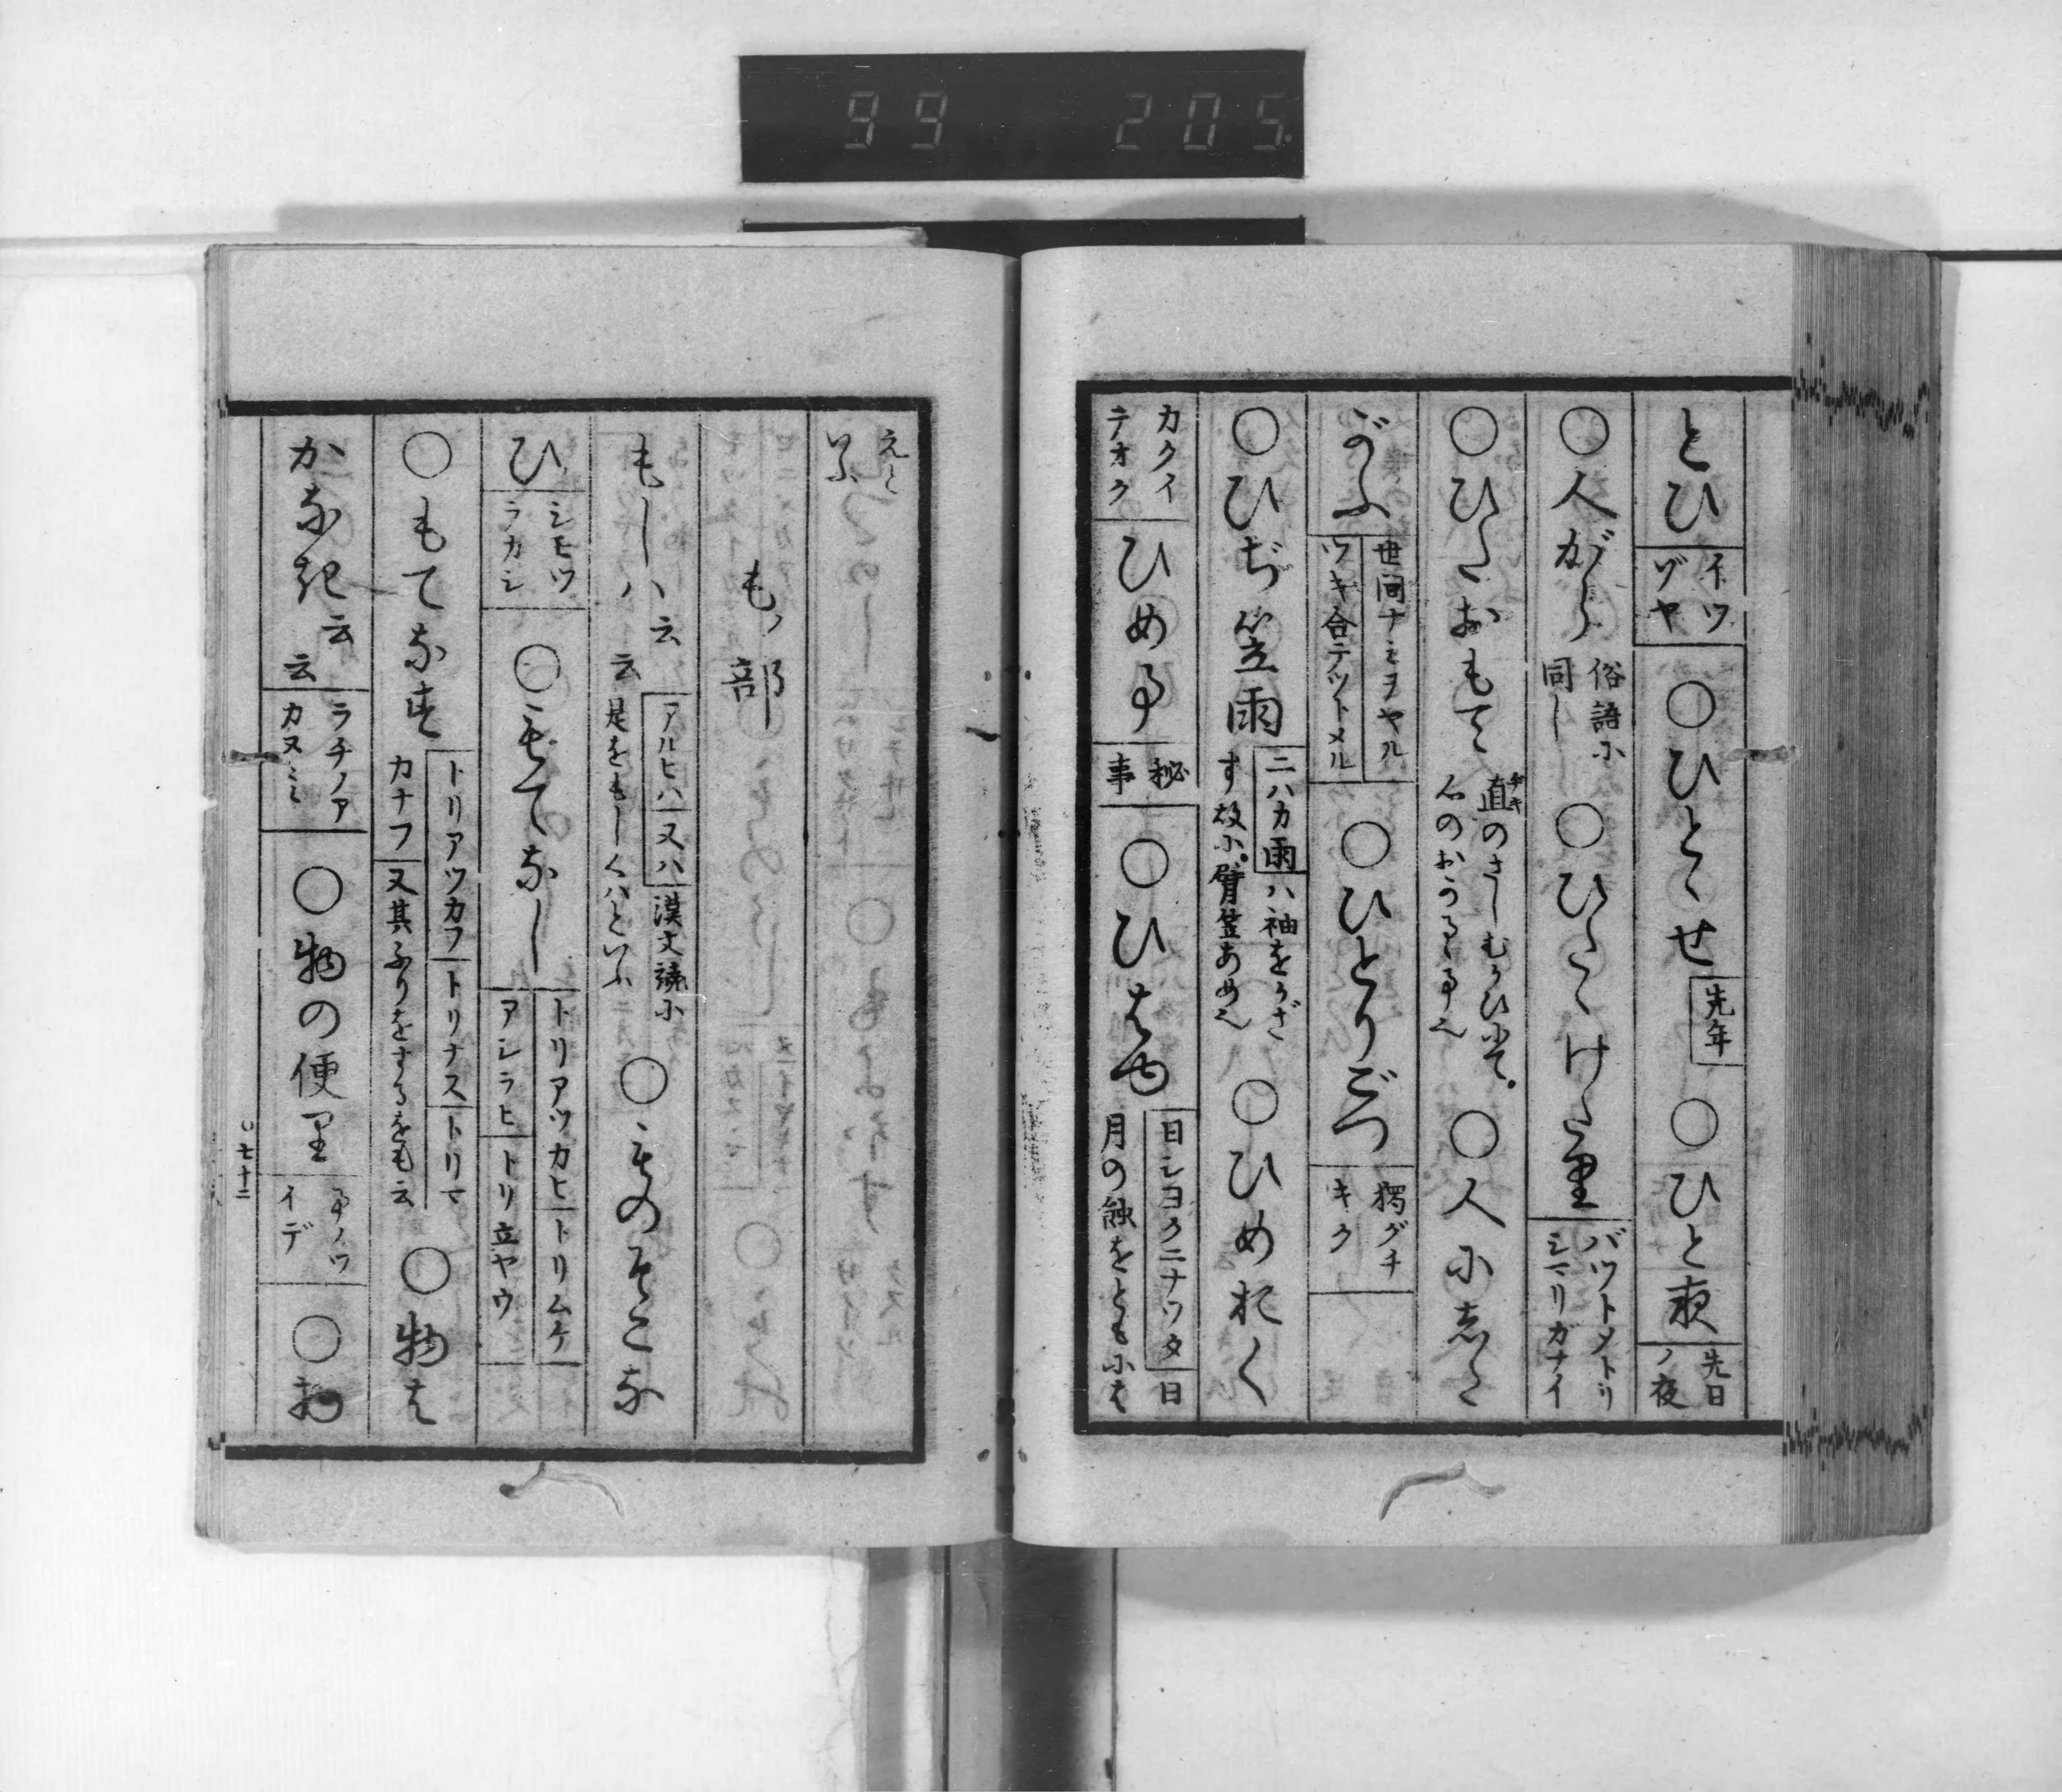 99 205
とひ イツゾヤ ○ひとゝせ 先年 ○ひと夜 先日ノ夜
○人がら 俗語に同し ○ひたゝけた里 バツトメトリシマリガナイ
○ひたおもて 直のさしむかひにて。 ○人にした
がふ 世間ナミヲヤル ツキ合テツトメル ○ひとりごつ 獨グチキク
○ひぢ笠雨 ニハカ雨ハ袖をかざす故に。臂笠あめ也 ○ひめおく
カクイテオク ひめ事 秘事 ○ひはや 日シヨクニナツタ日月の蝕をともには
えといふ
も部
もしハ云云 アルヒハ 又ハ 漢文読に是をもしくハといふ ○ものそこな
ひ シモツラカシ ○もてなし トリアツカヒ トリムケ アシラヒ トリ立ヤウ
○もてなす トリアツカフ トリナス トリマカナフ 又其ふりをするをも云 ○物は
かなき云云 ラチノアカヌミ ○物の便里 事ノツイデ ○お
○七十二